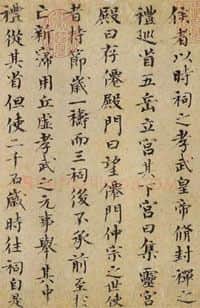 侯者以時祠之孝武皇帝脩封禪之
禮巡省五岳立宮其下宮曰集靈宮
殿曰存僊殿門曰望僊門仲宗之世使
者持節歲一禱而三祠後不承前至於
亡新用丘虛孝武之元事舉其中
禮從其省但使二千石歲時往祠自是